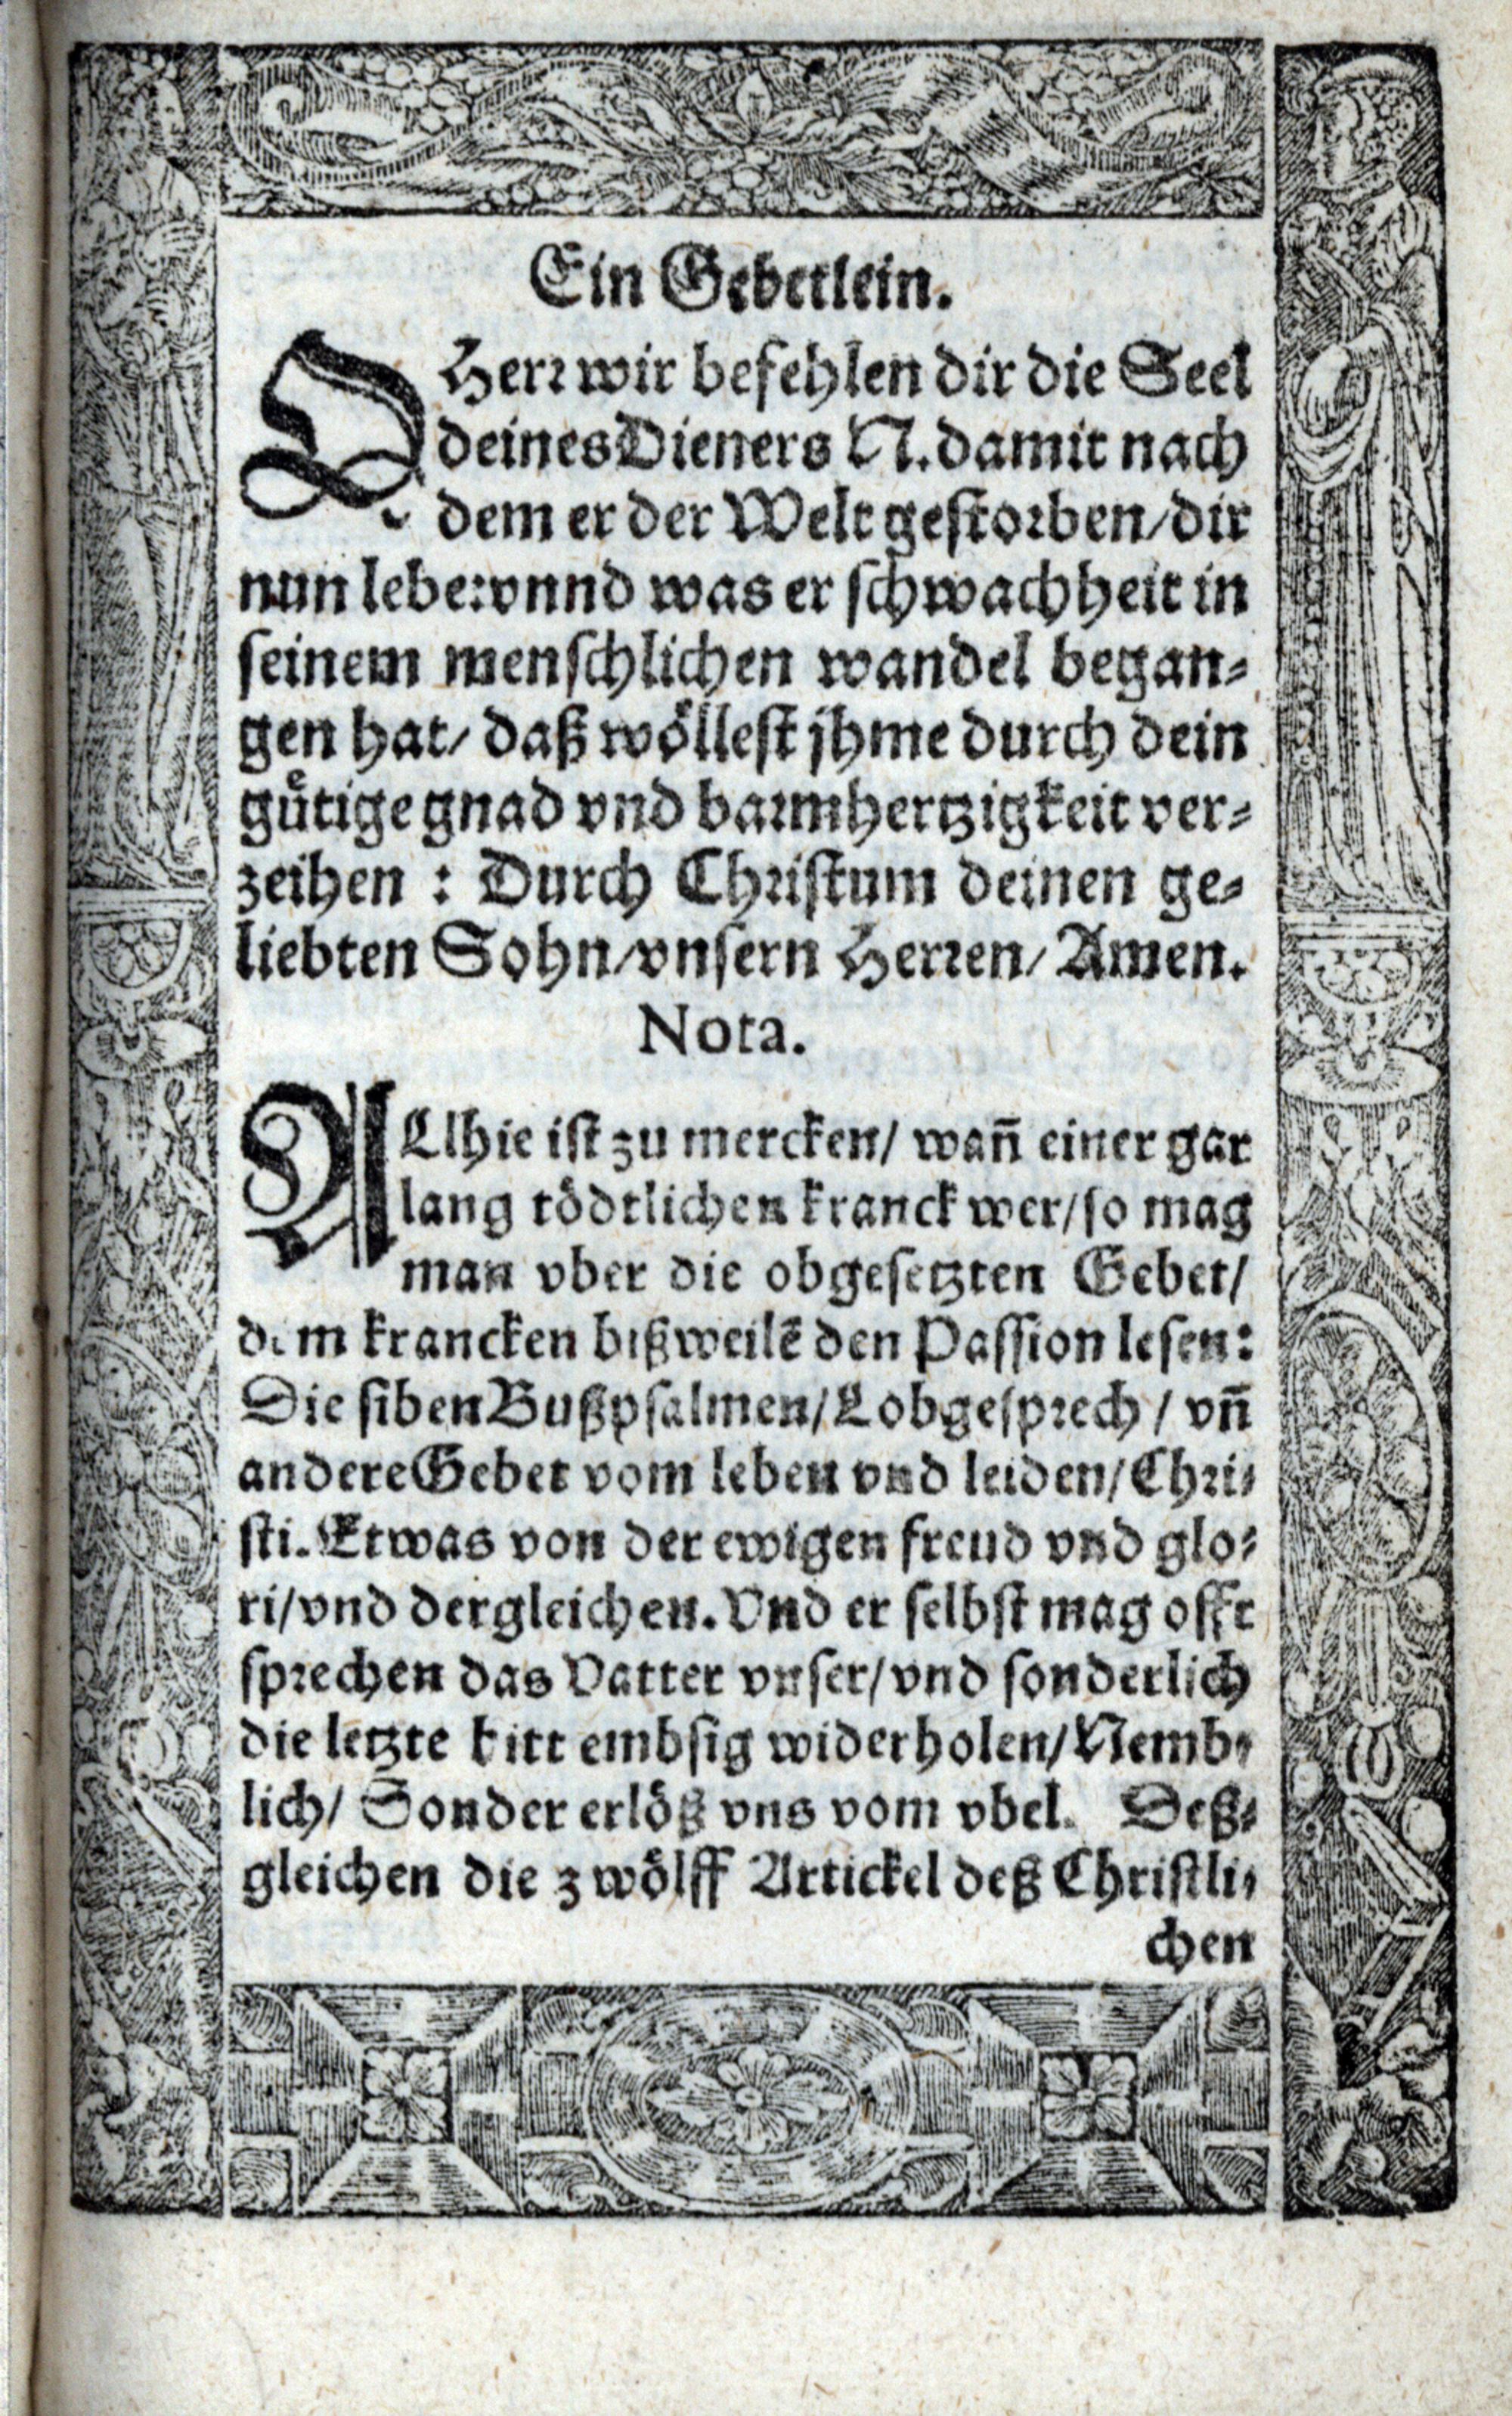 Ein Gebetlein.
O Herr wir befehlen dir die Seel
deines Dieners N. damit nach
dem er der Welt gestorben/dir
nun lebe: vnnd was er schwachheit in
seinem menschlichen wandel began-
gen hat/ daß wöllest jhme durch dein
gütige gnad vnd barmhertzigkeit ver-
zeihen : Durch Christum deinen ge-
liebten Sohn/vnsern Herren/ Amen.
Nota.
ALlhie ist zu mercken/ wañ einer gar
lang tödtlichen kranck wer/so mag
man vber die obgesetzten Gebet/
dem krancken bißweilẽ den Passion lesen:
Die siben Bußpsalmen/Lobgesprech / vñ
andere Gebet vom leben vnd leiden/Chri-
sti. Etwas von der ewigen freud vnd glo-
ri/vnd dergleichen. Vnd er selbst mag offt
sprechen das Vatter vnser/vnd sonderlich
die letzte bitt embsig widerholen/Nemb-
lich/ Sonder erlöß vns vom vbel. Deß-
gleichen die zwölff Artickel deß Christli-
chen